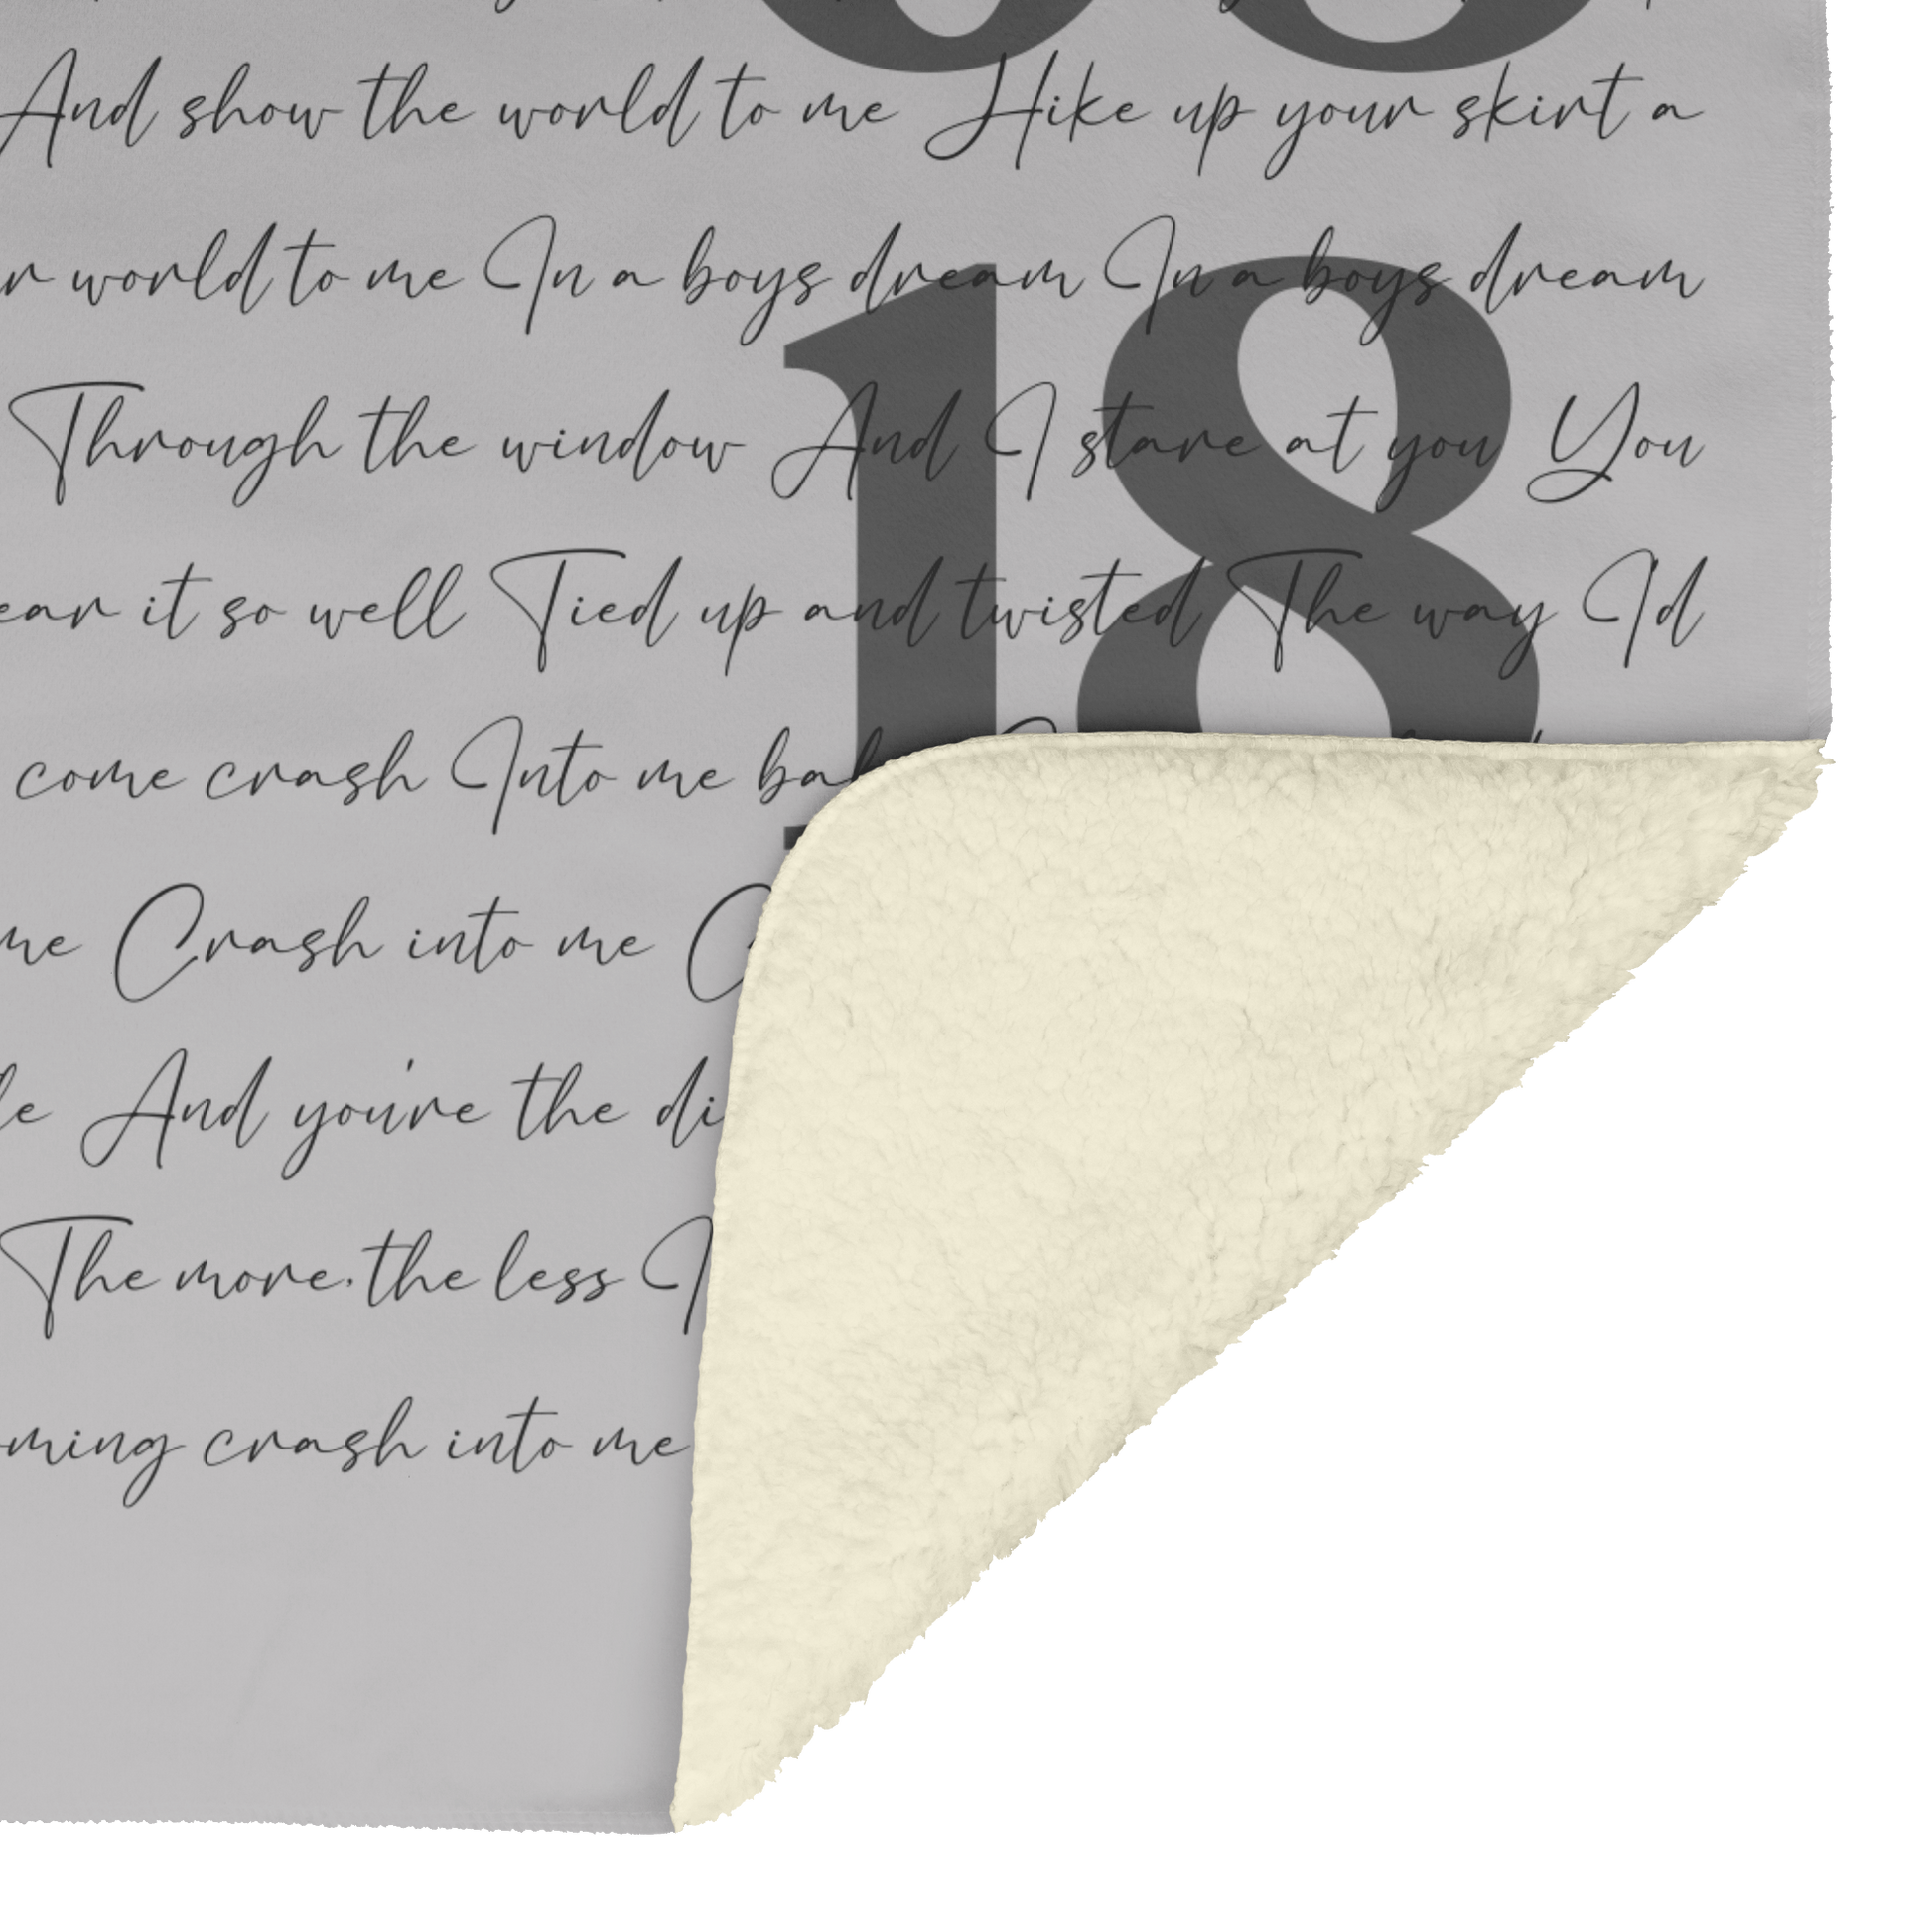 And show the world to me Hike up your skirt a
world to me In a boys dream In a boys dream
18
Through the window And I stare at you You
it so well Tied up and twisted The way Id
come crash Into me
me Crash into me
And you're the
The more the less I
crash into me